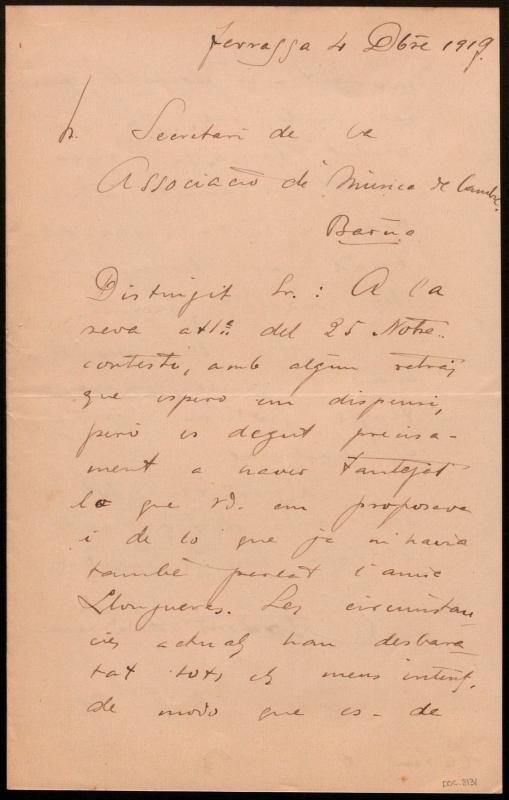 Terrassa 4 Dbre 1919.
Sr. Secretari de la
Associació de Música de Cambre.
Barna
Distingit Sr.: A la
seva atta del 25 Nbre.
contesto, amb algun retràs
que espero em dispensi,
però es degut precisa-
ment a haver tantejat
lo que V. em proposava
i de lo que ja m'havia
també parlat l'amic
Llongueras. Les circunstan-
cies actuals han desbara-
tat tots els meus intents,
de modo que es de
DOC. 8131